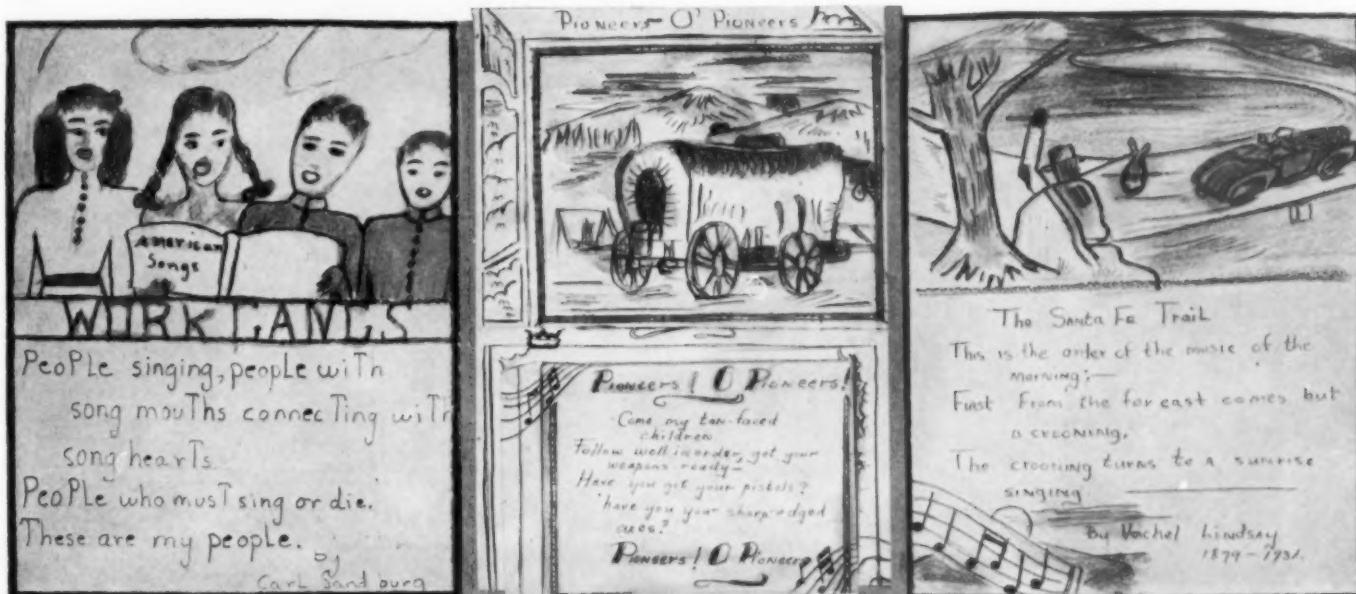 American
Songs
WORK GANGS
PeoPLe singing, peopLe wiTh
song mouThs connecTing wiTh
song hearTs.
PeoPLe who musT sing or die.
These are my people.
by
Carl Sandburg
Pioneers - O' Pioneers
Pioneers! O Pioneers!
Come my tan-faced
children
Follow well in order, get your
weapons ready—
Have you got your pistols?
have you your sharp-edged
axes?
Pioneers! O Pioneers
The Santa Fe Trail
This is the order of the music of the
morning:—
First From the far east comes but
a crooning.
The crooning turns to a sunrise
singing
By Vachel Lindsay
1879 - 1931